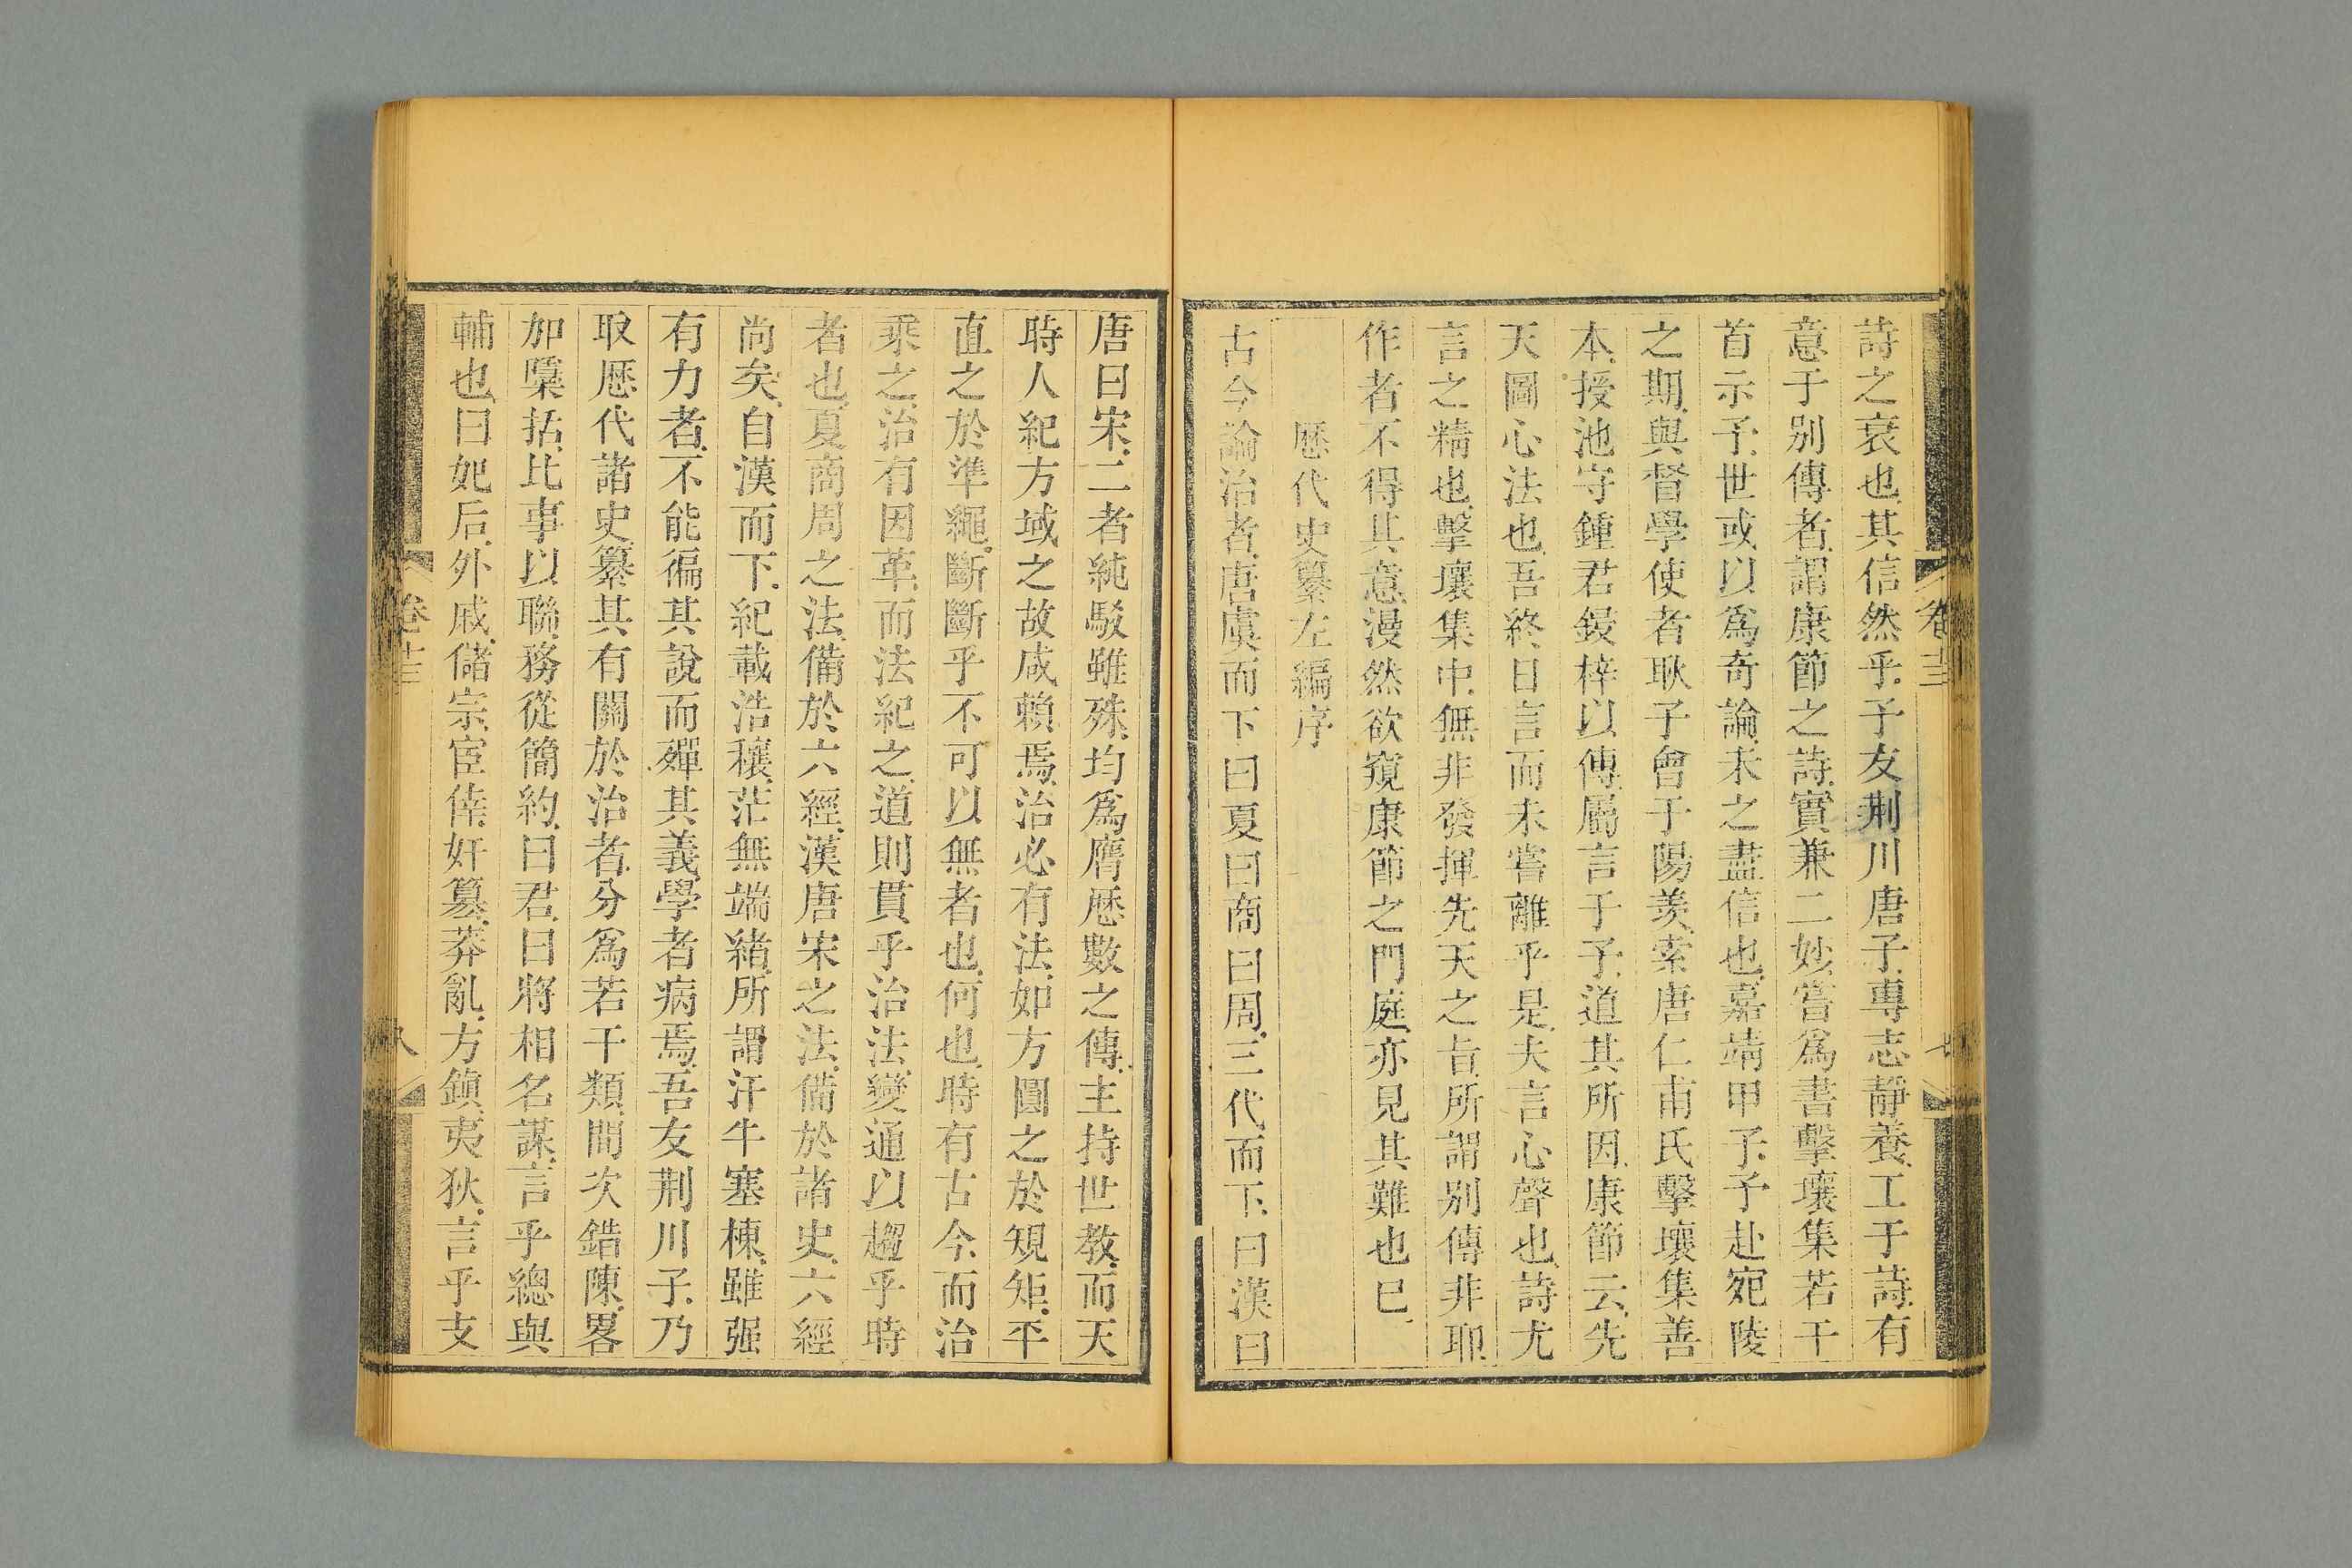 詩之衰也其信然乎予友荆川唐子專志靜養工于詩有
意于别傳者謂康節之詩實兼二妙嘗爲書擊壤集若干
首示予世或以爲奇論未之盡信也嘉靖甲子予赴宛陵
之期與督學使者耿子會于陽羨索唐仁甫氏擊壤集善
本授池守鍾君鋟梓以傳屬言于予道其所因康節云先
天圖心法也吾終日言而未嘗離乎是夫言心聲也詩尤
言之精也擊壤集中無非發揮先天之旨所謂别傳非耶
作者不得其意漫然欲窺康節之門庭亦見其難也已
歷代史纂左編序
古今論治者唐虞而下曰夏曰商曰周三代而下曰漢曰
唐曰宋二者純駁雖殊均爲膺歷數之傳主持世教而天
時人紀方域之故咸賴焉治必有法如方圓之於規矩平
直之於準繩斷斷乎不可以無者也何也時有古今而治
乘之治有因革而法紀之道則貫乎治法變通以趨乎時
者也夏商周之法備於六經漢唐宋之法備於諸史六經
尚矣自漢而下紀載浩穰茫無端緒所謂汗牛塞棟雖强
有力者不能徧其說而殫其義學者病焉吾友荆川子乃
取歷代諸史纂其有關於治者分爲若干類間次錯陳畧
加櫽括比事以聯務從簡約曰君曰將相名謀言乎總與
輔也曰妃后外戚儲宗宦倖奸篡莽亂方鎮夷狄言乎支
卷十三
七
卷十三
八